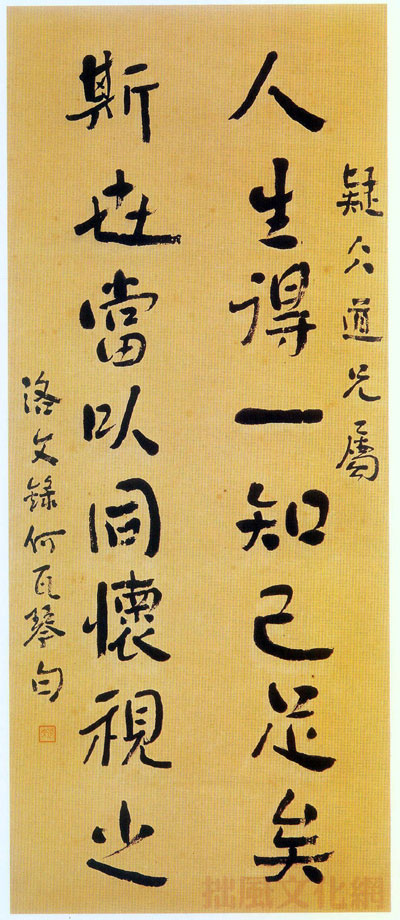 疑仌道兄屬
人生得一知己足矣
斯世當以同懷視之
洛文錄何瓦琴句
拙風文化網